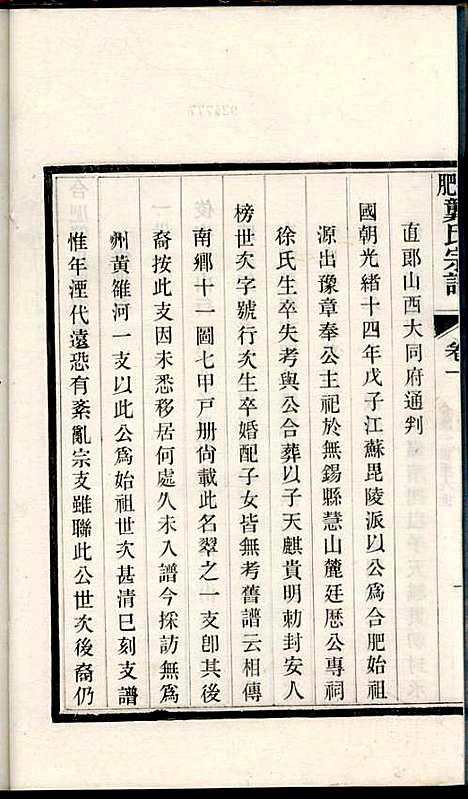 肥龔氏宗譜
卷一
直郞山西大同府通判
國朝光緒十四年戊子江蘇毘陵派以公爲合肥始祖
源出豫章奉公主祀於無錫縣慧山麓廷歷公專祠
徐氏生卒失考與公合葬以子天麒貴明勅封安人
榜世次字號行次生卒婚配子女皆無考舊譜云相傳
南鄉十一圖七甲戸册尙載此名翠之一支卽其後
裔按此支因未悉移居何處久未入譜今採訪無爲
州黃雒河一支以此公爲始祖世次甚清巳刻支譜
惟年湮代遠恐有紊亂宗支雖聯此公世次後裔仍